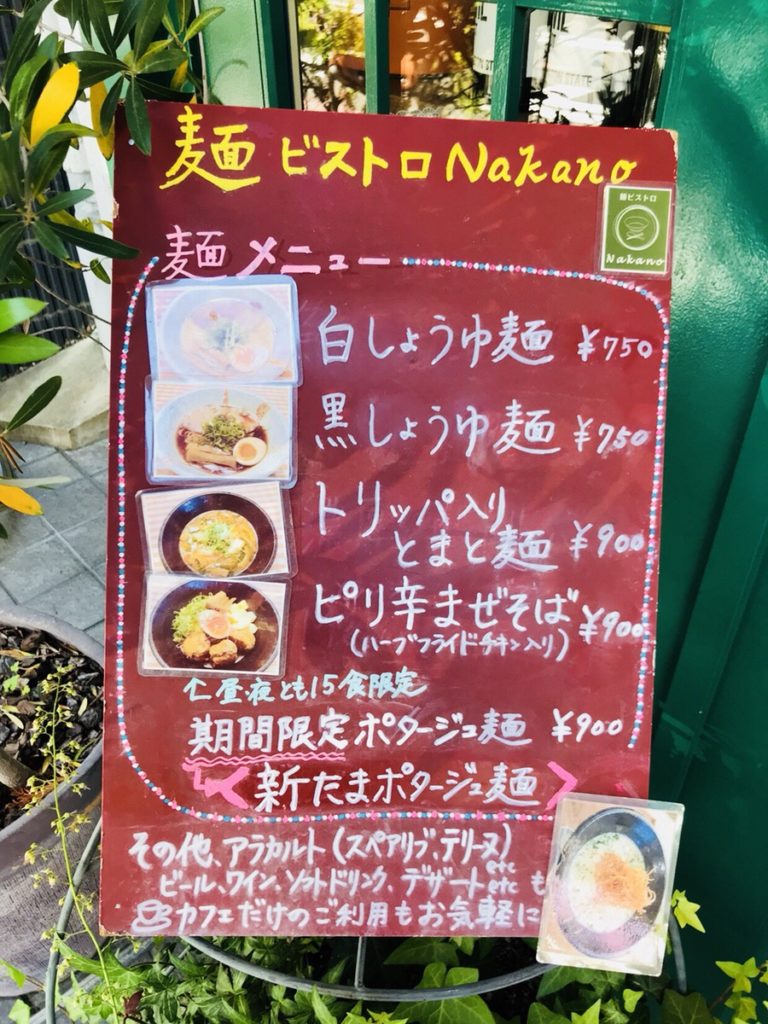 麺ビストロ Nakano
麺ビストロ
Nakano
麺メニュー
白しょうゆ麺 ¥750
黒しょうゆ麺 ¥750
トリッパ入り
とまと麺 ¥900
ピリ辛まぜそば ¥900
(ハーブフライドチキン入り)
↑昼・夜とも15食限定
期間限定 ポタージュ麺 ¥900
新たまポタージュ麺
その他、アラカルト(スペアリブ、テリーヌ)
etc
ビール、ワイン、ソフトドリンク、デザートetcも
カフェだけのご利用もお気軽に